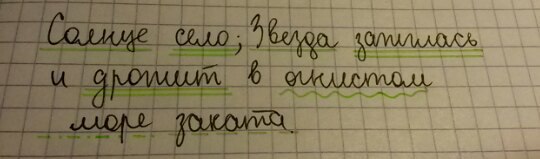 Солнце село; Звезда зажглась
и дрожит в огнистом
море заката.